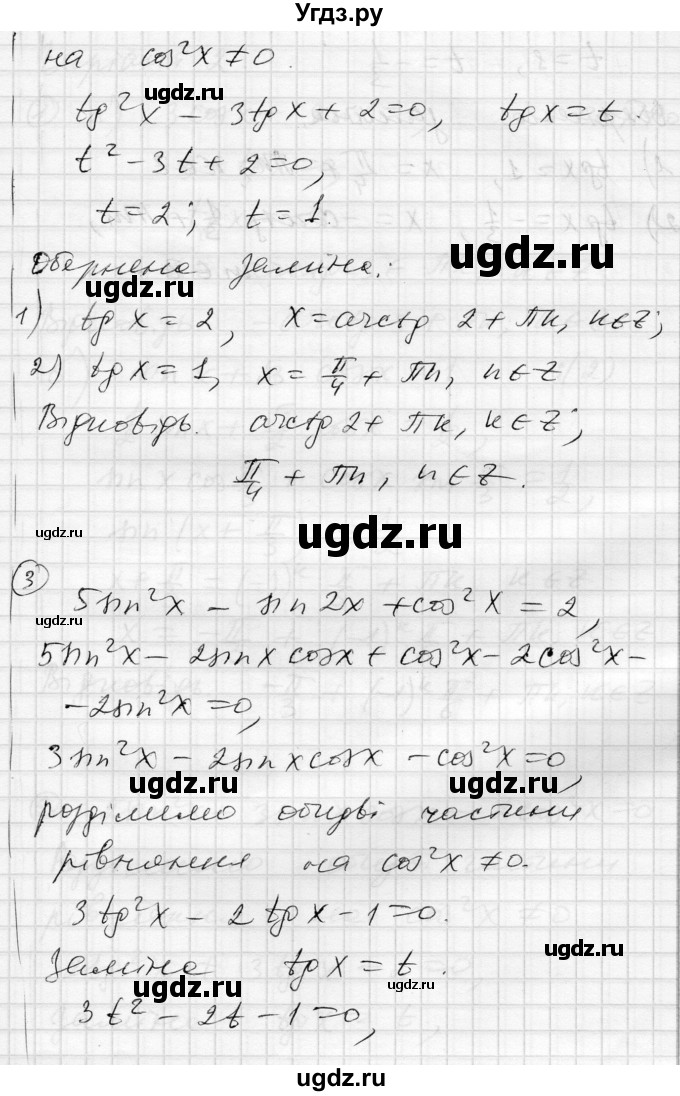 Угдз.ру
на cos²x ≠ 0.
ugdz.ru
tg²x − 3tgx + 2 = 0, tgx = t.
t² − 3t + 2 = 0,
t = 2; t = 1.
ugdz.ru
Обернена заміна:
ugdz.ru
1) tgx = 2, x = arctg 2 + πk, k∈Z;
2) tgx = 1, x = π/4 + πn, n∈Z
Відповідь. arctg 2 + πk, k∈Z;
π/4 + πn, n∈Z.
ugdz.ru
ugdz.ru
3
5sin²x − sin2x + cos²x = 2,
ugdz.ru
5sin²x − 2sinxcosx + cos²x − 2cos²x −
− 2sin²x = 0,
3sin²x − 2sinxcosx − cos²x = 0,
ugdz.ru ugdz.ru
розділимо обидві частини
рівняння на cos²x ≠ 0.
3tg²x − 2tgx − 1 = 0.
ugdz.ru
Заміна tgx = t.
ugdz.ru ugdz.ru
3t² − 2t − 1 = 0,
ugdz.ru